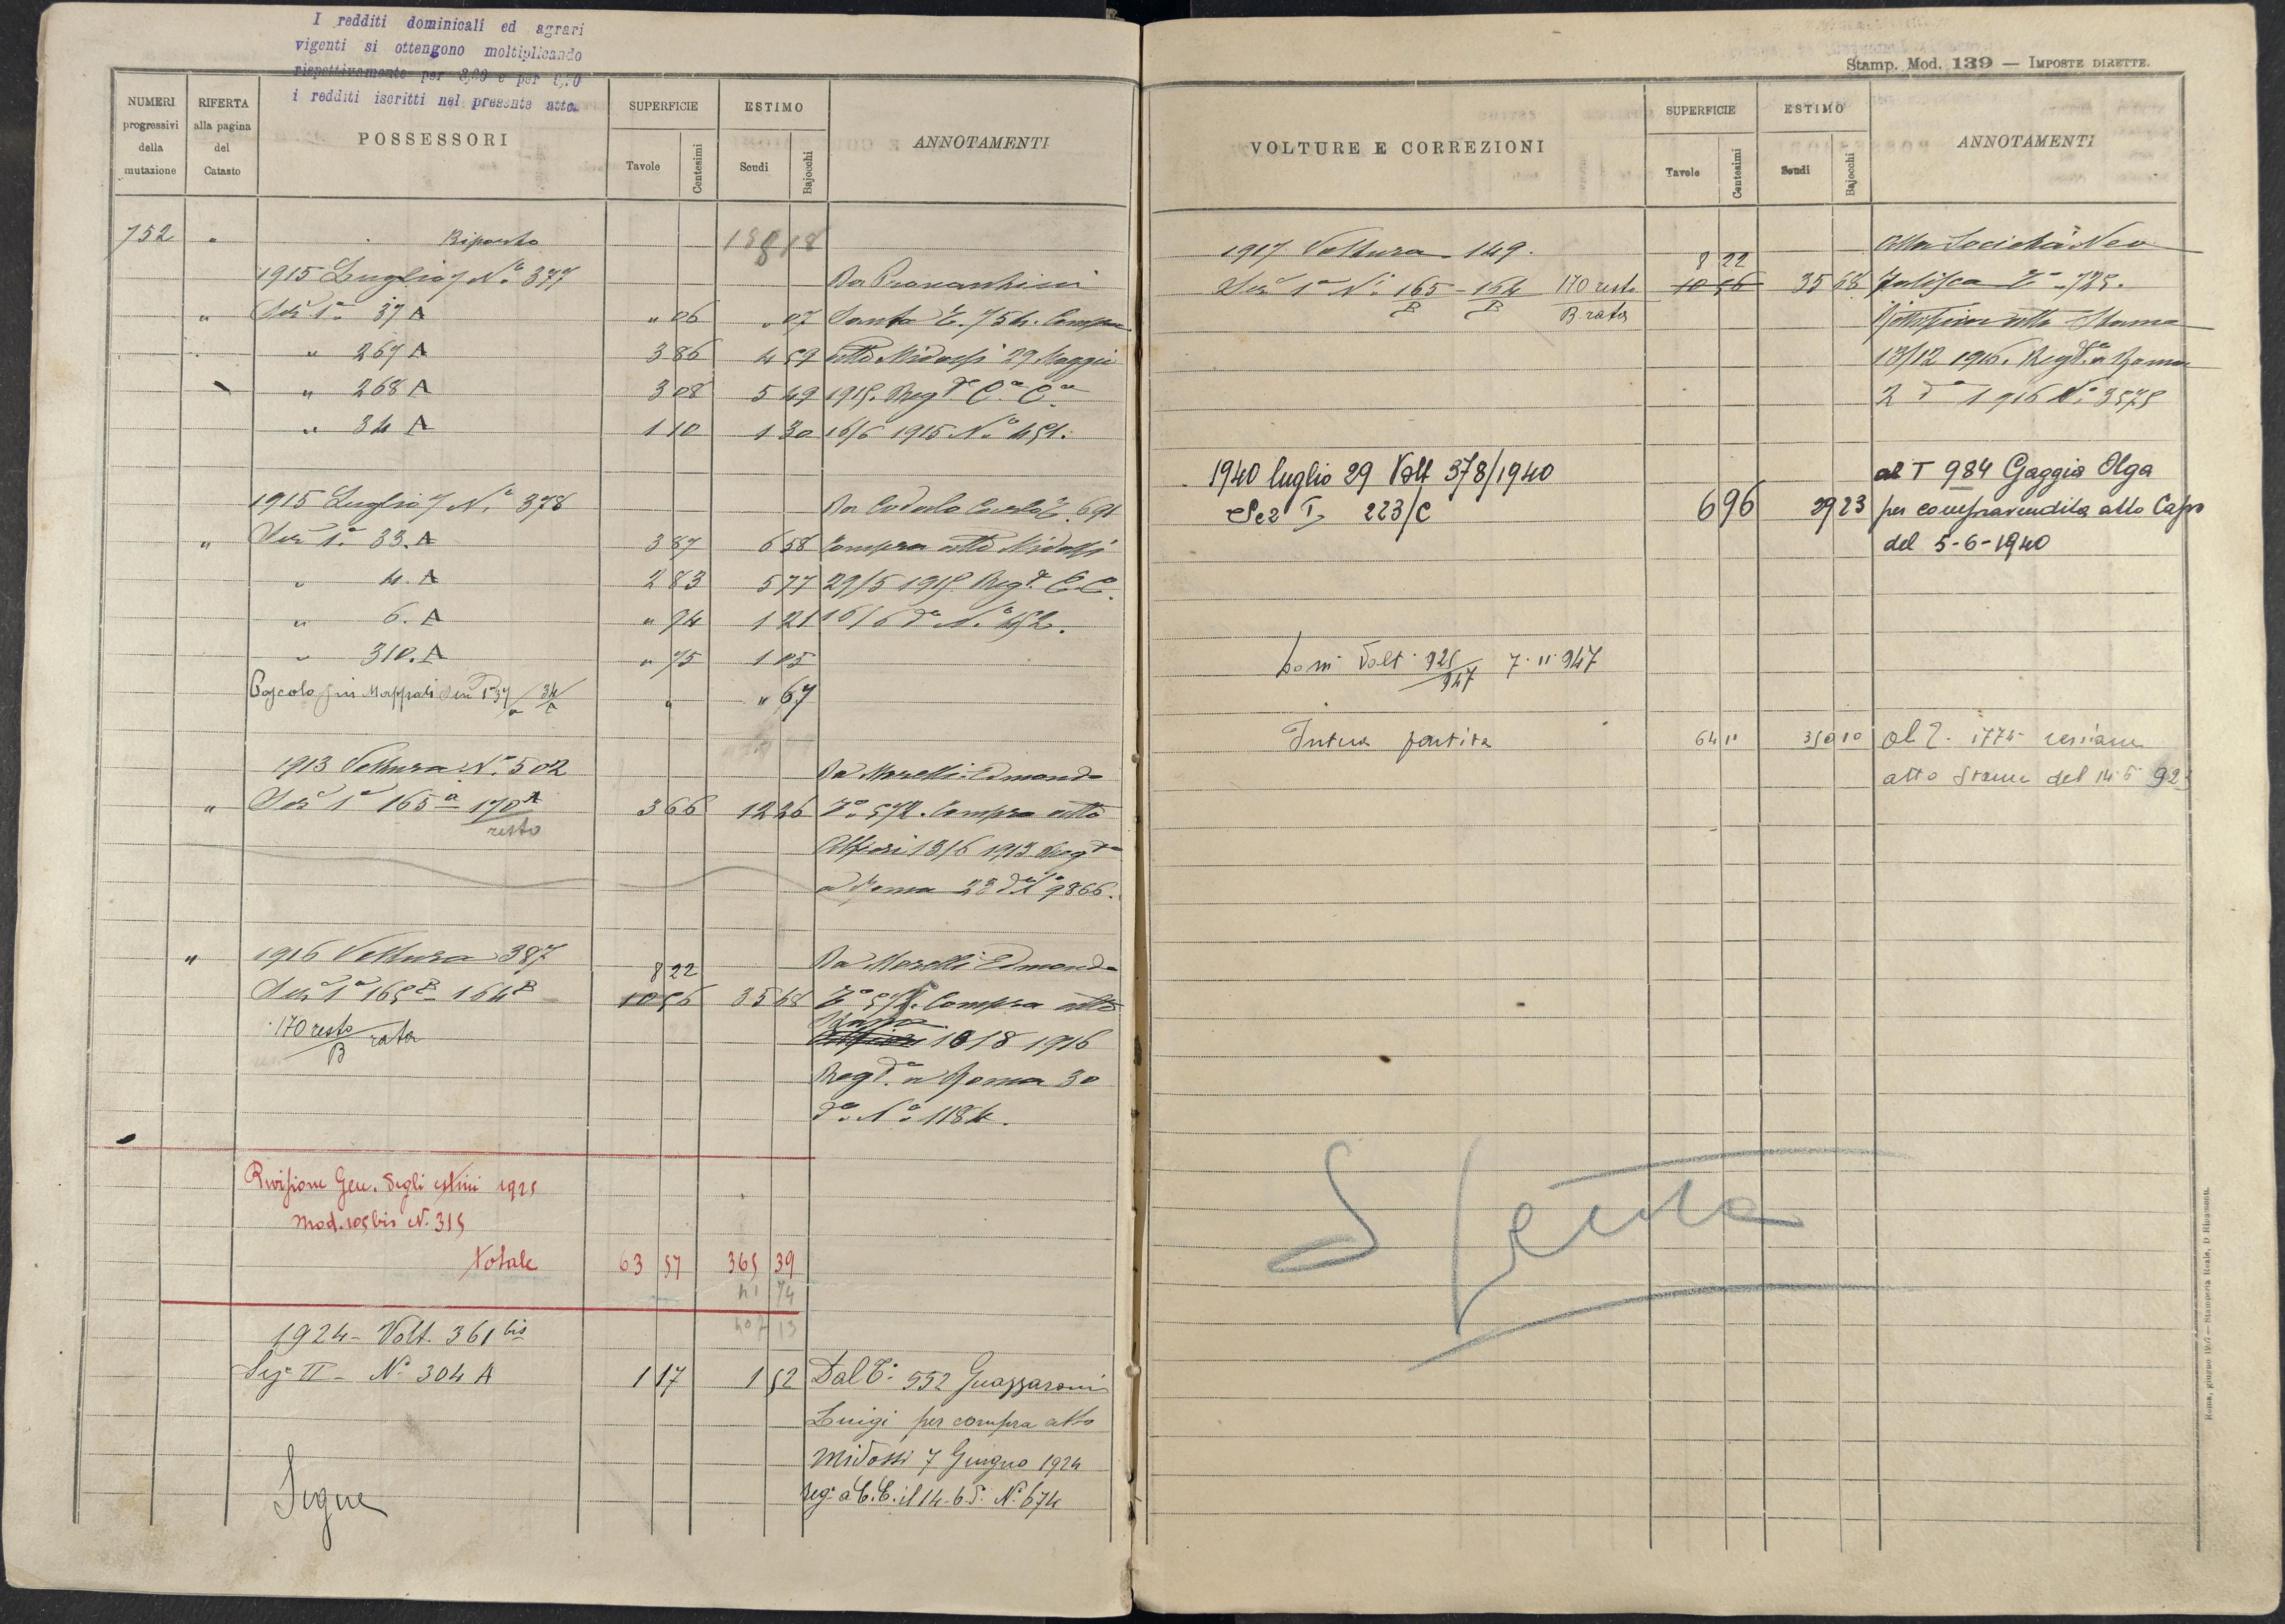 I redditi dominicali ed agrari
vigenti si ottengono moltiplicando
rispettivamente per 8,80 e per
i redditi iscritti nel presente atto.
NUMERI progressivi della mutazione
RIFERTA alla pagina del Catasto
POSSESSORI
SUPERFICIE
Tavole
Centesimi
ESTIMO
Scudi
Bajocchi
ANNOTAMENTI
752 " Riporto
1915 Luglio 7 N.° 377
" Sez 1a 37 A " 06 " 07 Santa T. 754. Compra
" 267 A 3 86 4 59 atto Midossi 29 Maggio
" 268 A 3 08 5 49 1915. Regto C.a C.a
" 34 A 1 10 1 30 16/6 1915 N.° 451.
1915 Luglio 7 N.° 378 691
" Sez 1a 33. A 3 87 6 58 Compra atto Midossi
" 4. A 2 83 5 77 29/5 1915 Regto C. C.
" 6. A " 94 1 21 16/6 do N.° 452.
" 310. A " 75 1 05
" " 67
1913 Voltura N.° 502 Da Morelli Edmondo
" Sez 1a 165 a 170 A 3 66 12 26 T.o 572. Compra atto
resto
18/6 1913 Regto
a Roma 23 do N° 9866.
" 1916 Voltura 387 Da Morelli Edmondo
8 22
Sez 1a 165 B - 164 B 10 56 35 68 T.o 572. Compra atto
170 resto
B rata
1918 1916
Regto a Roma 30
do N.° 1184.
Revisione Gen. degli estimi 1925
Mod. 105 bis N. 315
Totale 63 57 365 39
41 74
407 13
1924 - Volt. 361 bis
Sez II - N.° 304 A 1 17 1 52 Dal T.° 552 Guazzaroni
Luigi per compra atto
Midossi 7 Giugno 1924
reg. a C.C. il 14.6.d. N.° 674
Segue
Stamp. Mod. 139 — IMPOSTE DIRETTE.
VOLTURE E CORREZIONI
SUPERFICIE
Tavole
Centesimi
ESTIMO
Scudi
Bajocchi
ANNOTAMENTI
1917 Voltura 149. Alla Società Neo
8 22
Sez 1a N.° 165 B - 164 B 170 resto B rata 10 56 35 68 T.° 725.
atto Stame
13/12 1916. Regto a Roma
2 do 1916 N.° 3575
1940 luglio 29 Volt 378/1940 al T 984 Gaggia Olga
Sez I 223/C 6 96 29 23 per compravendita atto Capo
del 5-6-1940
Volt. 925/947 7.11.947
Intera partita 64 11 350 10 al T. 1774 cessione
atto Stame del 14.5.923
Spenta
Roma, giugno 1907 — Stamperia Reale, D. Ripamonti.